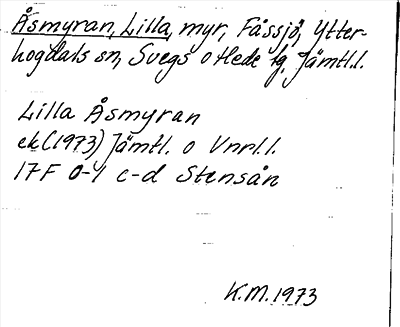 Åsmyran, Lilla, myr, Fåssjö, Ytter-
hogdals sn, Svegs o Hede tg, Jämtl.l.
Lilla Åsmyran
ek (1973) Jämtl. o Vnrl.l.
17F 0-1 c-d Stensån
K.M. 1973